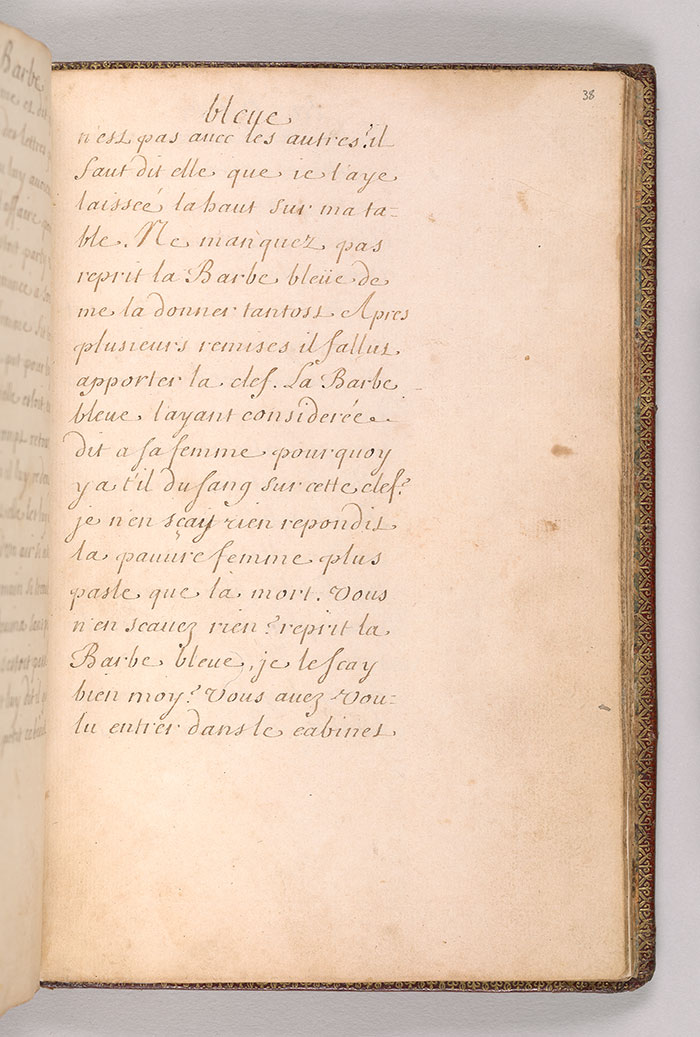 38
bleue
n'est pas auec les autres? il
faut dit elle que ie l'aye
laisseé la haut sur ma ta=
ble. Ne manquez pas
reprit la Barbe bleüe de
me la donner tantost Apres
plusieurs remises il fallut
apporter la clef. La Barbe
bleue l'ayant considereé
dit a sa femme pourquoy
y a t'il du sang sur cette clef?
je n'en sçay rien repondit
la pauure femme plus
pasle que la mort. Vous
n'en scauez rien? reprit la
Barbe bleue, je le scay
bien moy? Vous auez vou=
lu entrer dans le cabinet
Barbe